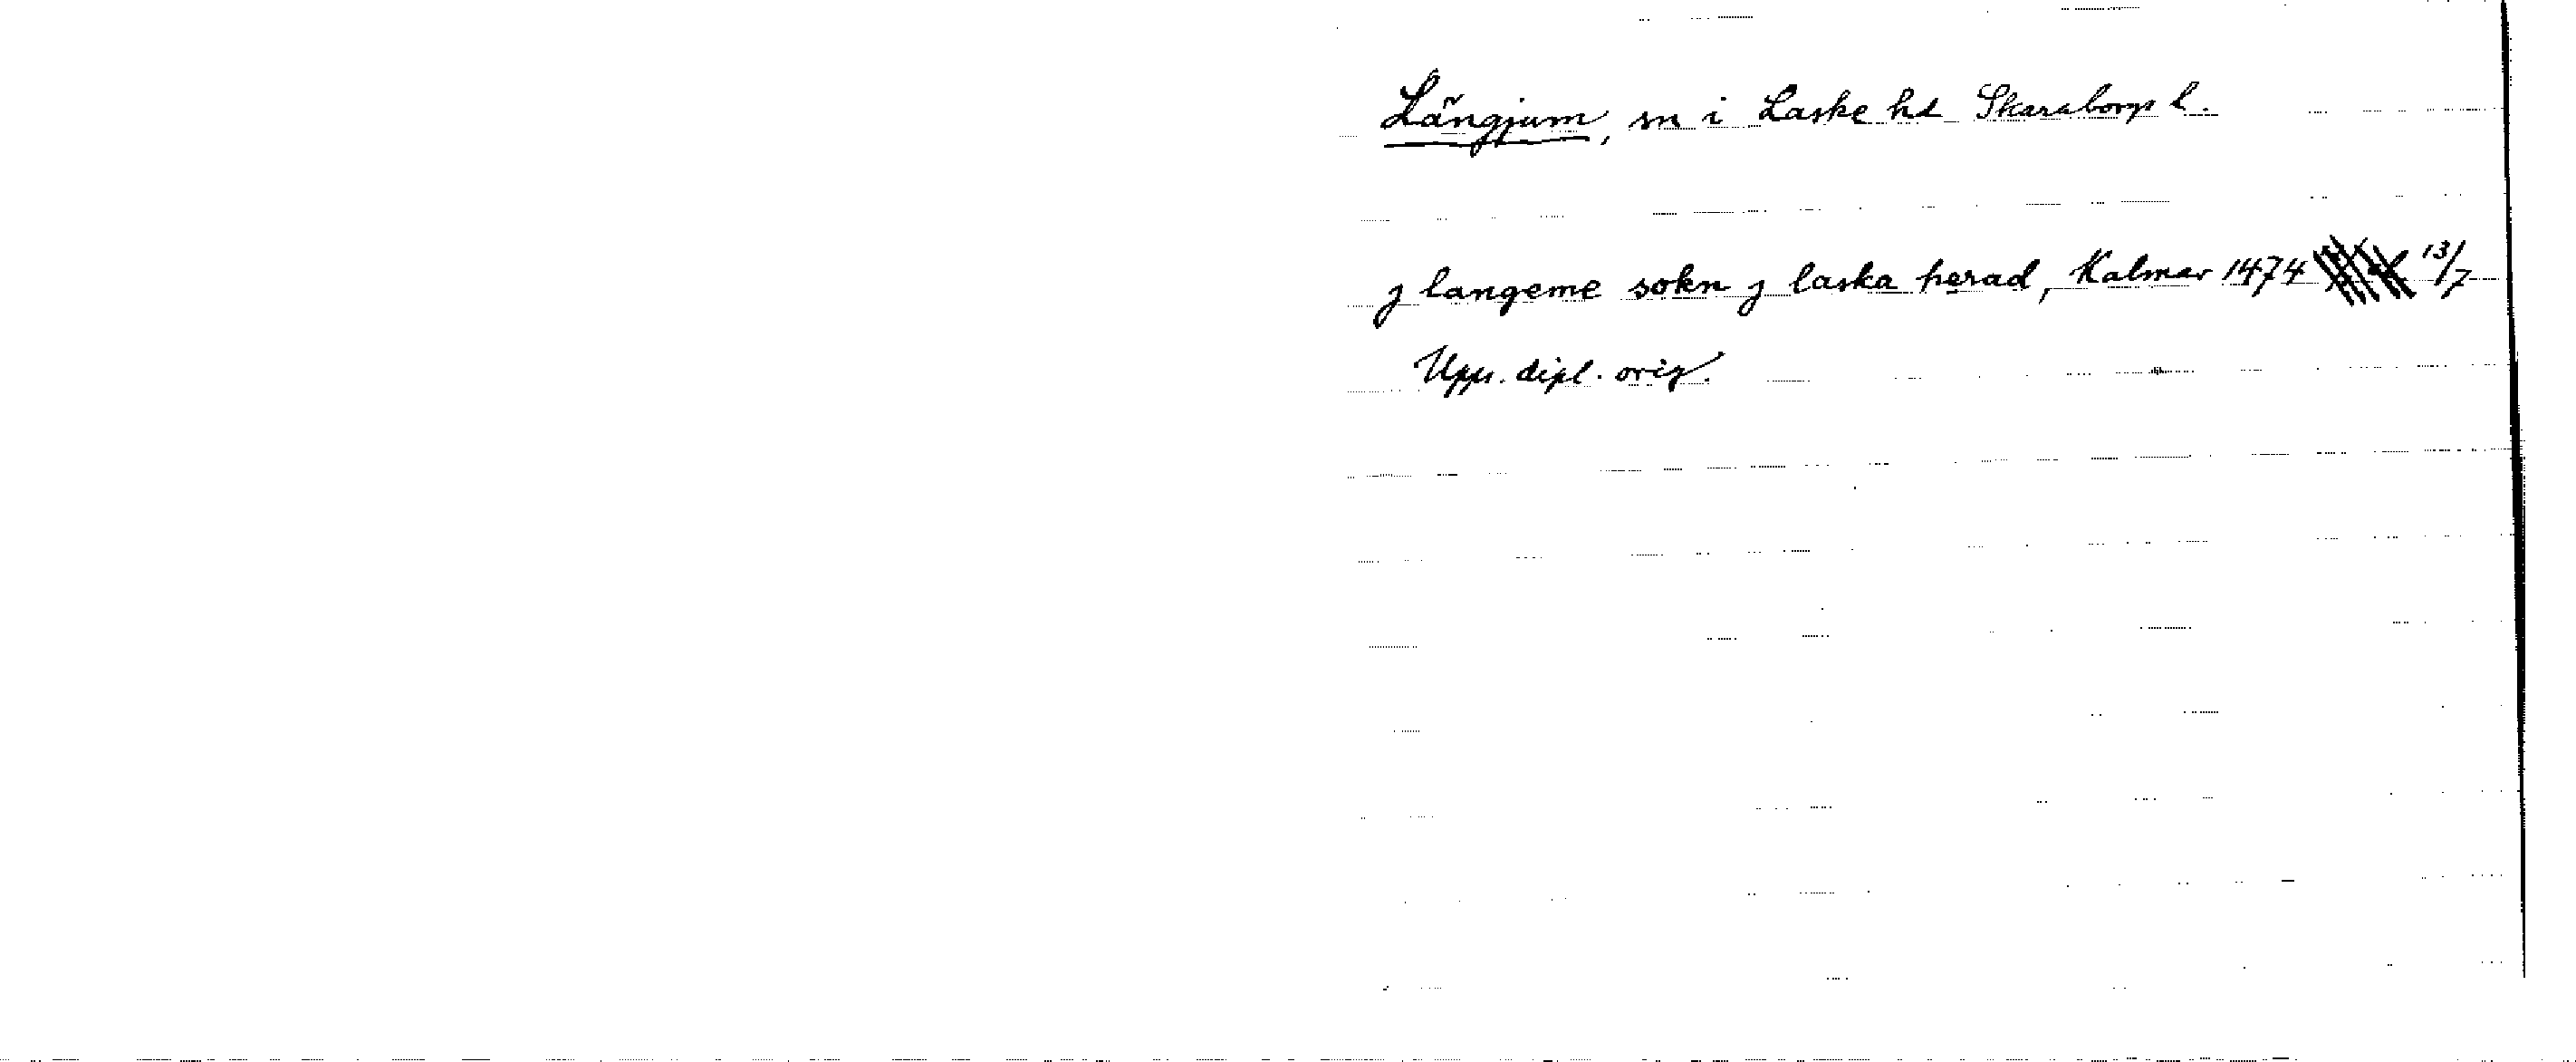 Längjum, sn i Laske hd Skaraborgs l.
j langeme sokn j laska herad, Kalmar 1474 13/7
Upps. dipl. orig.